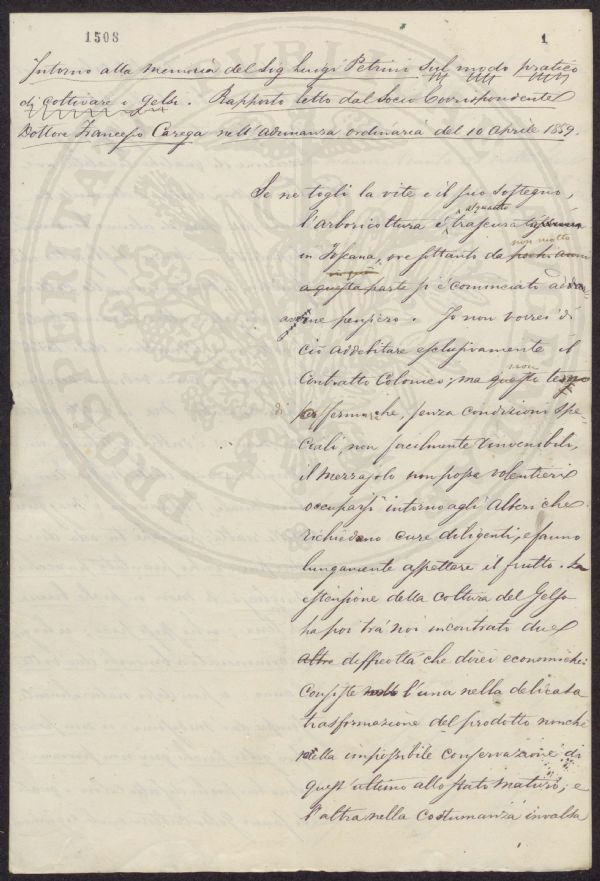 1508
1
Intorno alla memoria del Sig Luigi Petrini Sul modo pratico
di coltivare i Gelsi. Rapporto letto dal Socio Corrispondente
Dottore Francesco Carega nell'Adunanza ordinaria del 10 Aprile 1859.
Se ne togli la vite e il suo sostegno,
alquanto
l'arboricoltura è trascurata
non molto
in Toscana, ove soltanto da pochi anni
a questa parte si è cominciato ad
pensiero. Io non vorrei di
ciò addebitare esclusivamente il
non
Contratto Colonico; ma questi temo
di
per fermo che, senza condizioni spe-
ciali, non facilmente rinvenibili,
il Mezzajolo non possa volentieri
occuparsi intorno agli Alberi che
richiedono cure diligenti, e fanno
lungamente aspettare il frutto. La
estensione della coltura del Gelso
ha poi trà noi incontrato due
altre difficoltà che direi economiche:
Consiste l'una nella delicata
trasformazione del prodotto nonchè
nella impossibile conservazione di
quest'ultimo allo stato maturo; e
l'altra nella costumanza invalsa
PROSPERITATI